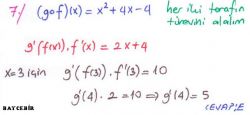 7/ (gof)(x) = x² + 4x - 4 her iki tarafın
türevini alalım
g'(f(x)).f'(x) = 2x + 4
x=3 için g'(f(3)).f'(3) = 10
g'(4).2 = 10 ⇒ g'(4) = 5
CEVAP:E
BAYCEBİR